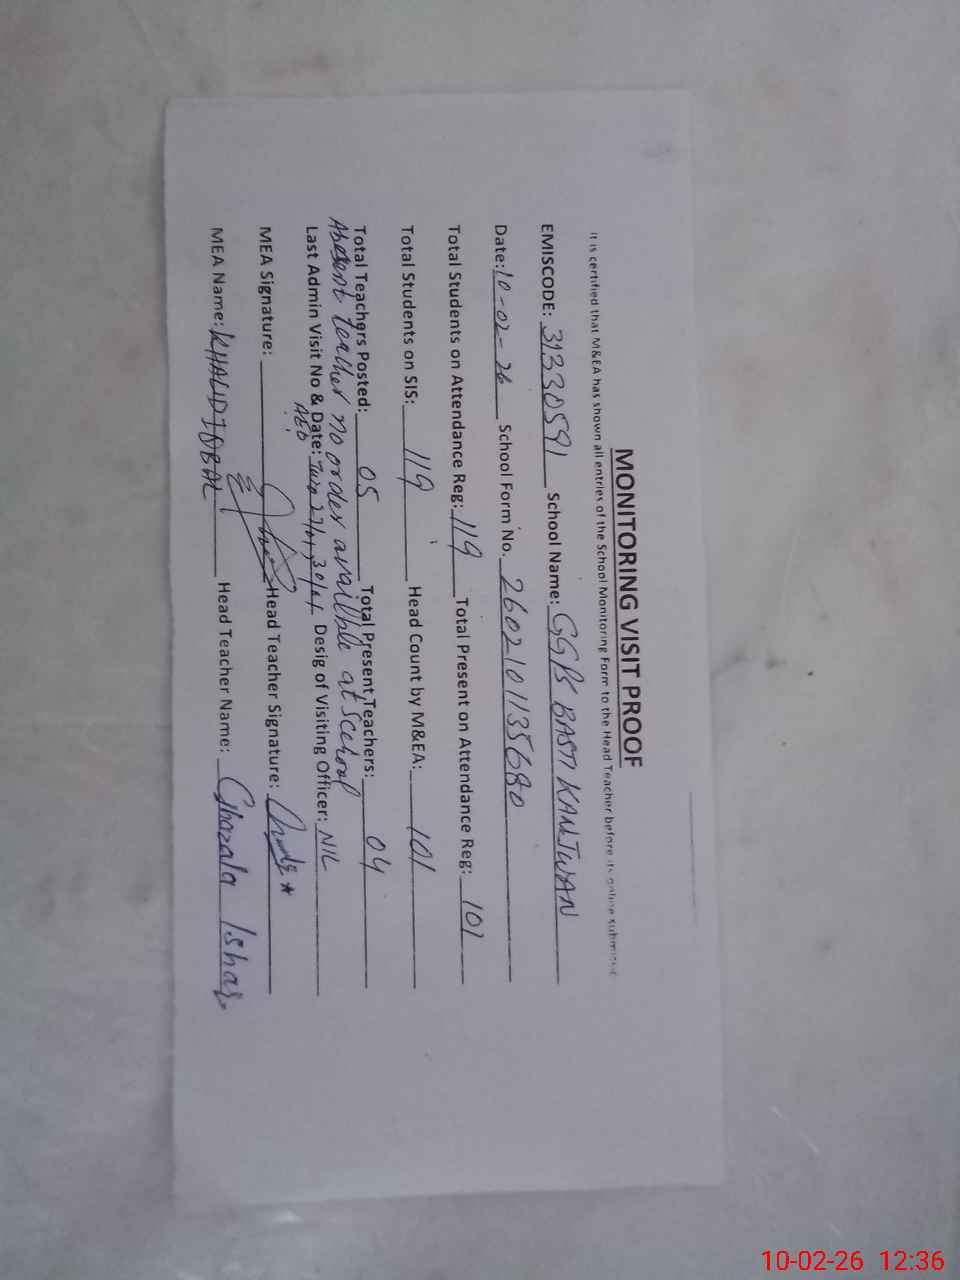 MONITORING VISIT PROOF
It is certified that M&EA has shown all entries of the School Monitoring Form to the Head Teacher before its online
EMISCODE: 31330591 School Name: GGPS BASTI KANJWAN
Date: 10-02-26 School Form No. 2602101135680
Total Students on Attendance Reg: 119 Total Present on Attendance Reg: 101
Total Students on SIS: 119 Head Count by M&EA: 101
Total Teachers Posted: 05 Total Present Teachers: 04
Abesent teacher no order availble at Scehool
Last Admin Visit No & Date: 27/01, 30/01 Desig of Visiting Officer: NIL
AEO
MEA Signature: Head Teacher Signature:
MEA Name: KHALID IQBAL Head Teacher Name: Ghazala Ishaq
10-02-26 12:36